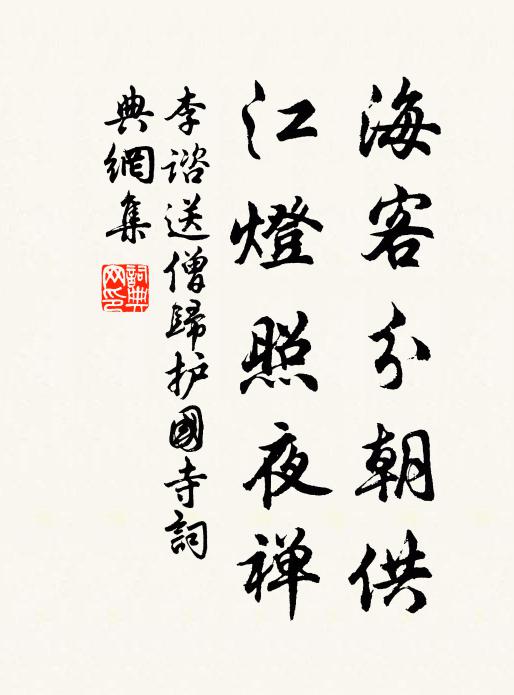 海客分朝供
江燈照夜禅
李諮送僧歸护國寺詞
典網集
詞典网印